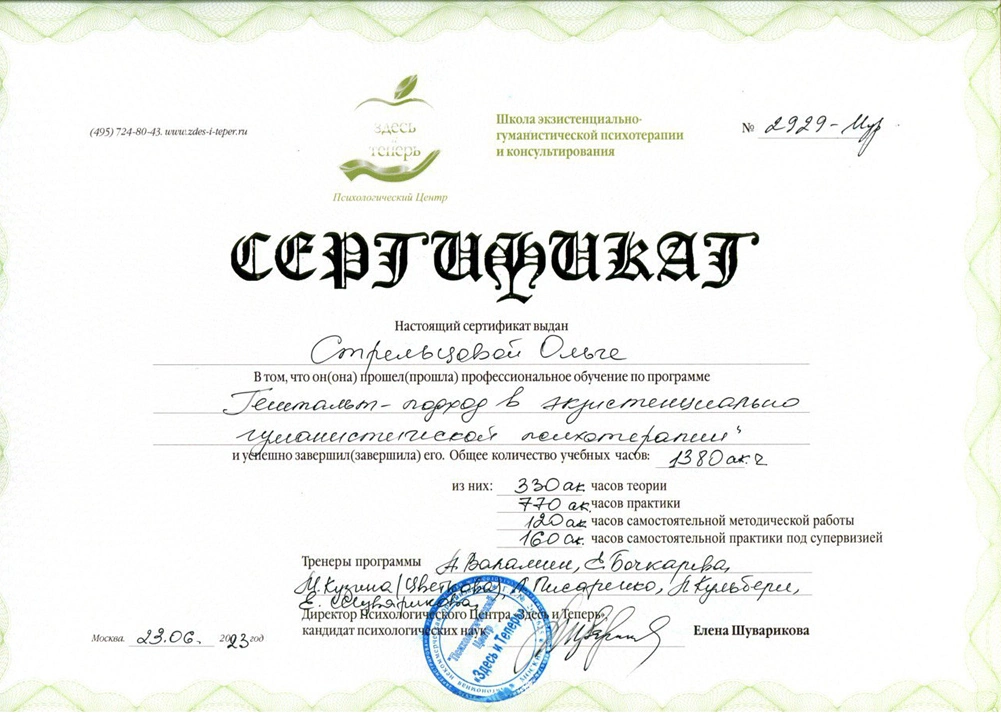 (495) 724-80-43. www.zdes-i-teper.ru
здесь
и
теперь
Психологический Центр
Школа экзистенциально-
гуманистической психотерапии
и консультирования
№ 2929-Мур
СЕРТИФИКАТ
Настоящий сертификат выдан
Стрельцовой Ольге
В том, что он(она) прошел(прошла) профессиональное обучение по программе
Гештальт-подход в экзистенциально
гуманистической психотерапии"
и успешно завершил(завершила) его. Общее количество учебных часов: 1380 ак.ч
из них: 330 ак. часов теории
770 ак. часов практики
120 ак. часов самостоятельной методической работы
160 ак. часов самостоятельной практики под супервизией
Тренеры программы А. Варламин, Е. Бочкарева,
Кузина (Цветкова) Писаренко, Кульбери,
Е. Шуварикова,
Директор Психологического Центра «Здесь и Теперь»,
кандидат психологических наук
Елена Шуварикова
Москва. 23.06. 2023 год
"Психологический
Центр
"Здесь и Теперь"